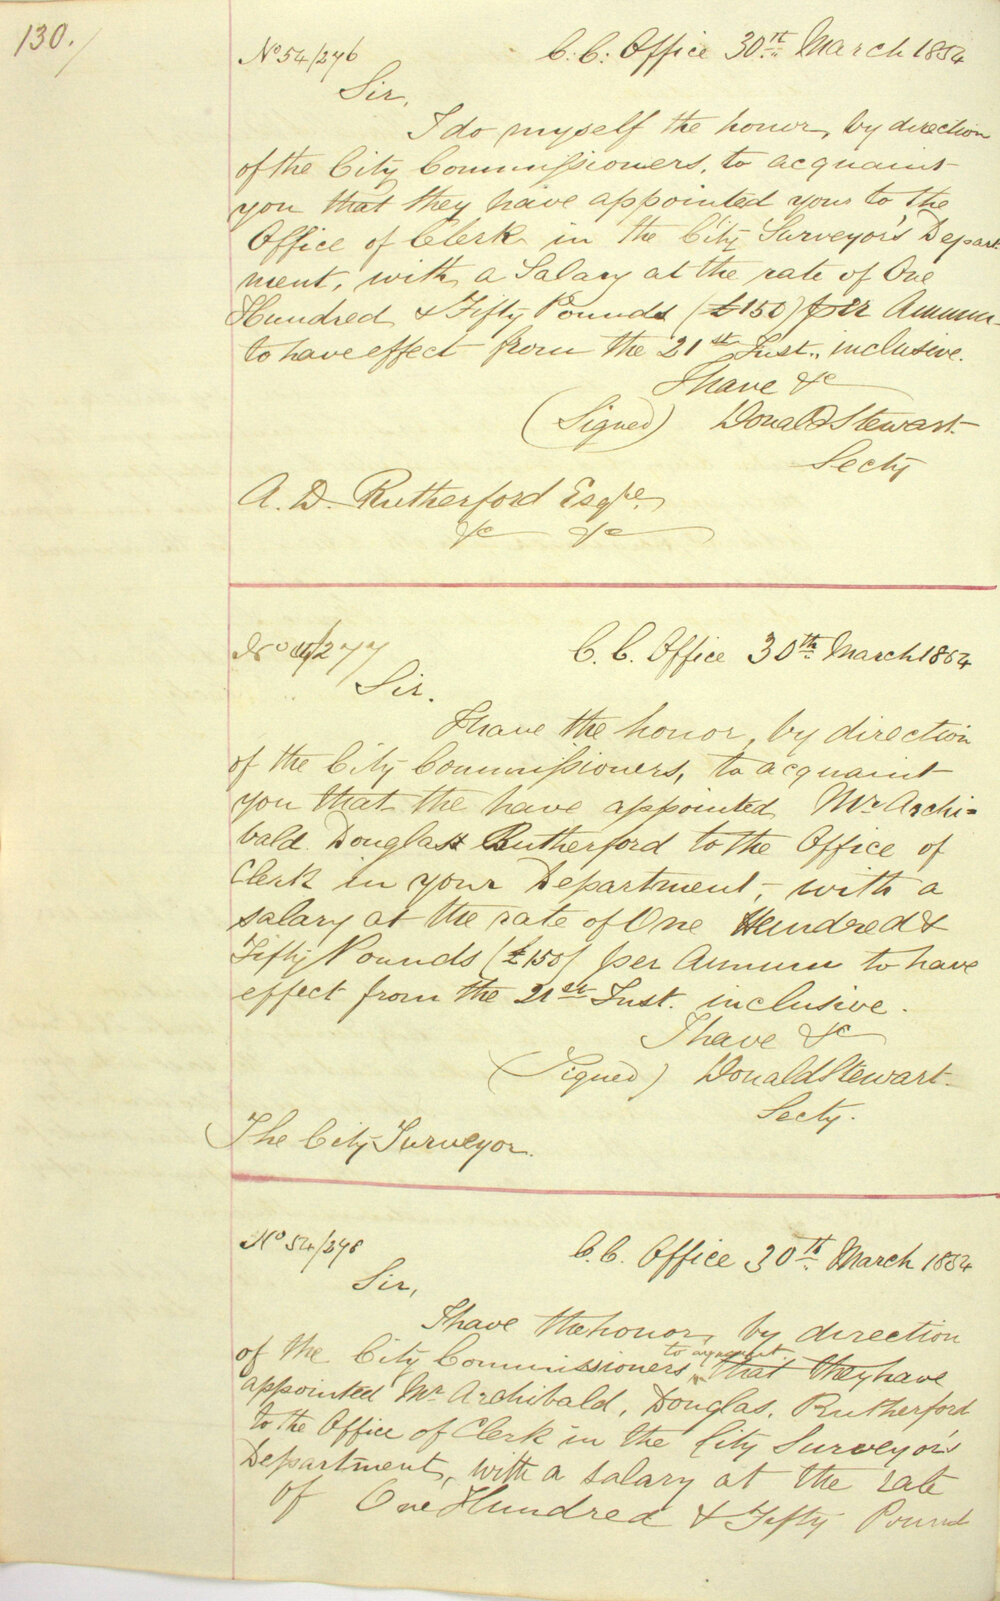 130.
No 54/276 C. C. Office 30th March 1854
Sir,
I do myself the honor, by direction
of the City Commissioners, to acquaint
you that they have appointed you to the
Office of Clerk in the City Surveyor's Depart-
ment, with a Salary at the rate of One
Hundred & Fifty Pounds (£150) per Annum
to have effect from the 21st Inst., inclusive.
I have &c
(Signed) Donald Stewart
Secty
A. D. Rutherford Esqre.
&c &c
No 4/277 C. C. Office 30th March 1854
Sir.
I have the honor, by direction
of the City Commissioners, to acquaint
you that the have appointed Mr Archi=
bald Douglass Rutherford to the Office of
Clerk in your Department, with a
salary at the rate of One Hundred &
Fifty Pounds (£150) per Annum to have
effect from the 21st Inst. inclusive.
I have &c
(Signed) Donald Stewart.
Secty.
The City Surveyor.
No 54/278 C. C. Office 30th March 1854
Sir,
I have the honor, by direction
of the City Commissioners, to acquaint that they have
appointed Mr Archibald, Douglas, Rutherford
to the Office of Clerk in the City Surveyor's
Department, with a salary at the rate
of One Hundred & Fifty Pound